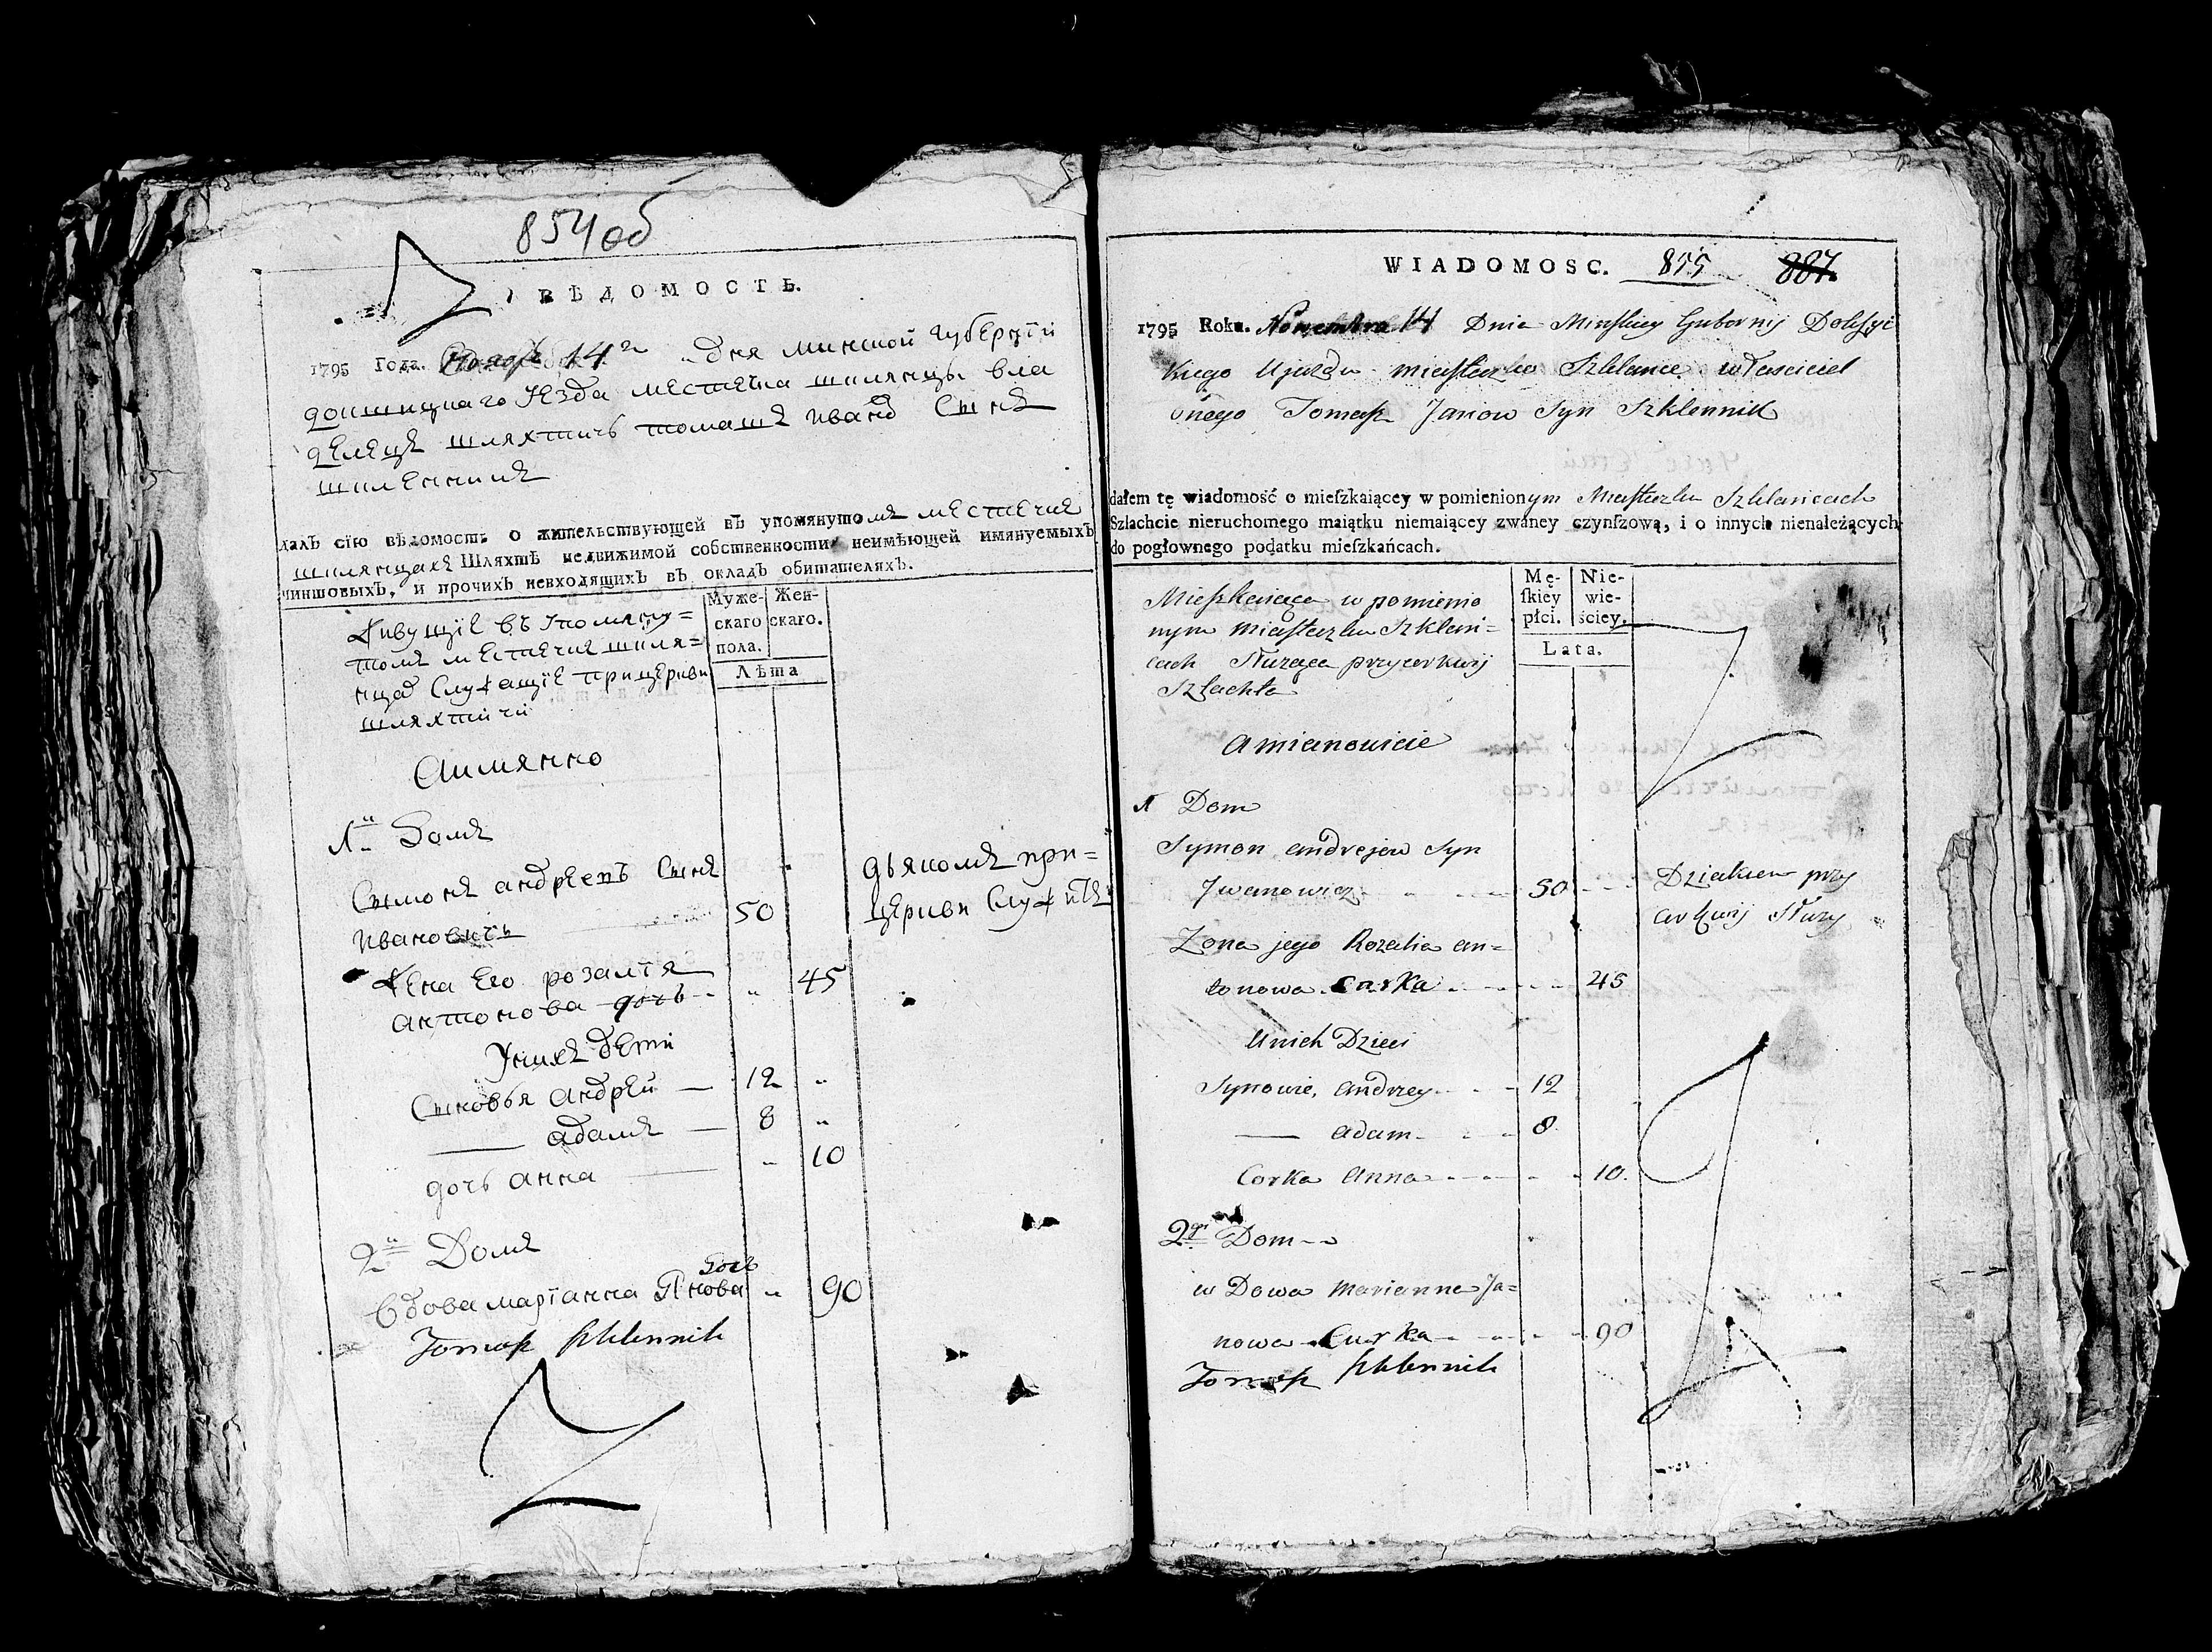 854 об
ВѢДОМОСТЬ.
1795 Года. Ноября 14го дня минской губернїи
докшицкаго уезда местечка шклянцы вла
делецъ шляхтичъ томашъ ивановъ сынъ
шкленникъ
далъ сїю вѣдомость о жительствующей въ упомянутомъ местечке
шклянцахъ Шляхтѣ недвижимой собственности неимѣющей имянуемыхъ
чиншовыхъ, и прочихъ невходящихъ въ окладъ обитателяхъ.
Муже- Жен-
скаго скаго.
пола.
Лѣта
Живущїе въ упомяну=
томъ местечке шкля=
нцах служащїе прицеркви
шляхтичи
Аимянно
1й Домъ
Сымонъ андреевъ сынъ
ивановичъ 50
дьякомъ при=
церкви служитъ
Жена его розалїя
антонова дочь " 45
Унихъ дети
Сыновья Андрей — 12 "
— адамъ — 8 "
дочь анна " 10
2й Домъ
дочь
Вдова марїанна Янова " 90
Tomasz Szklennik
WIADOMOSC. 855 887.
1795 Roku. Nowembra 14 Dnia Minskiey Gubernij Dokszyc
kiego Ujazdu miasteczka Szklance własciciel
onego Tomasz Janow Syn Szklennik
dałem tę wiadomość o mieſzkaiącey w pomienionym Miasteczku Szklancach
Szlachcie nieruchomego maiątku niemaiącey zwaney czynſzową, i o innych nienależących
do pogłownego podatku mieſzkańcach.
Mę- Nie-
ſkiey wie-
płci. ściey.
Lata.
Mieszkaiąca w pomienio
nym miasteczku Szklan=
cach Służąca przycerkwij
Szlachta
Amianowicie
1 Dom
Symon andrejew Syn
Jwanowicz 50
Dziakiem przy
cerkwij Służy
Zona jego Rozalia an=
tonowa Curka 45
Unich Dzieci
Synowie, andrzey 12
— adam 8
Corka Anna 10.
2gi Dom
w Dowa Marianna Ja=
nowa Curka 90
Tomasz Szklennik